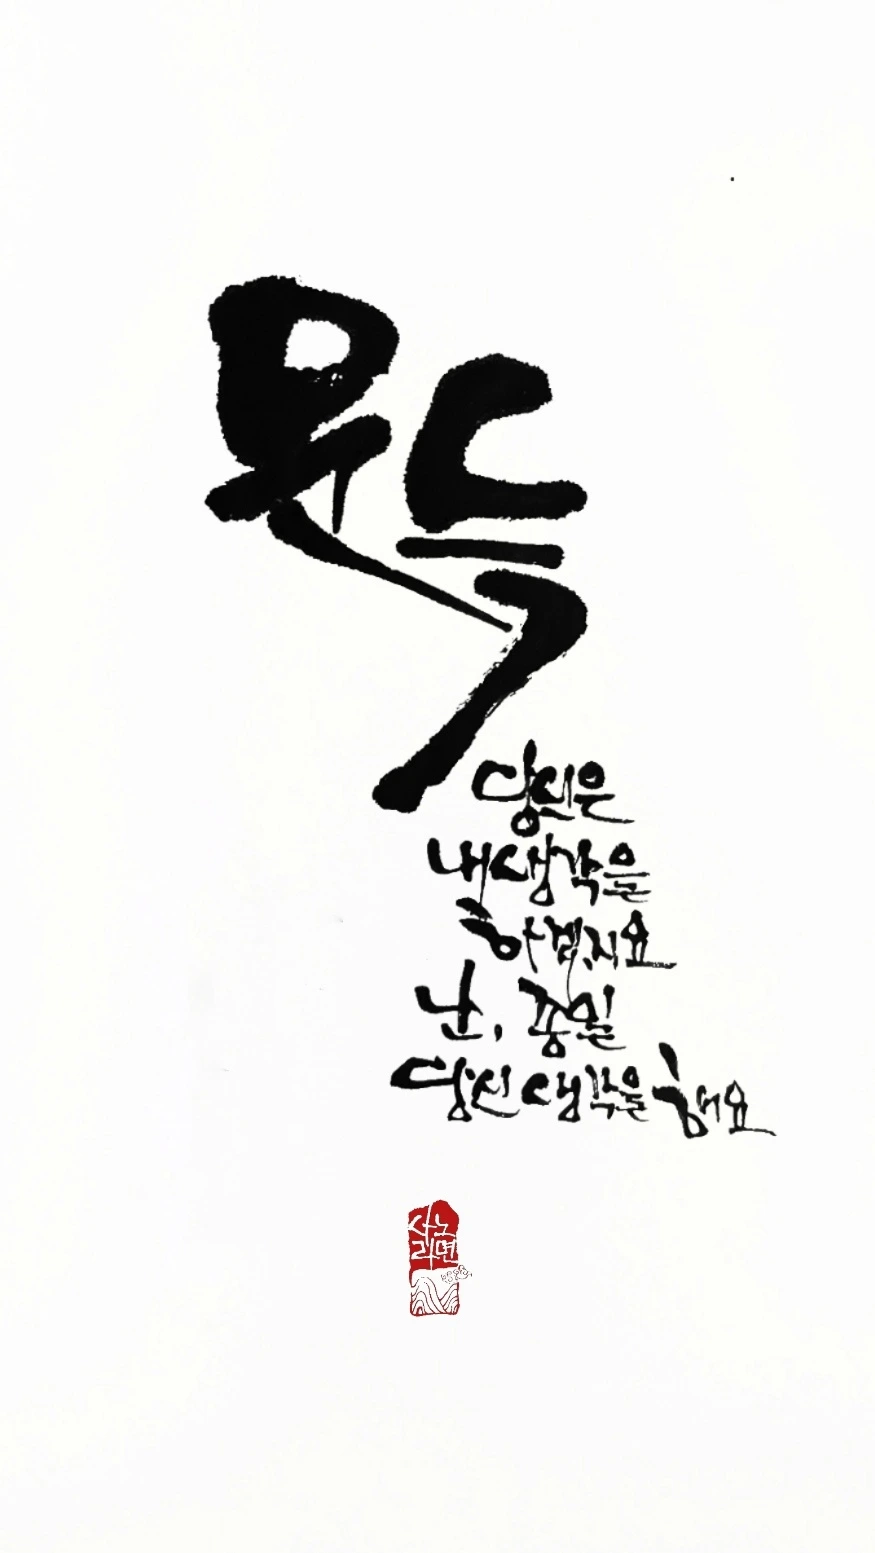 문득
당신은
내생각을
하겠지요
난, 종일
당신 생각을 해요